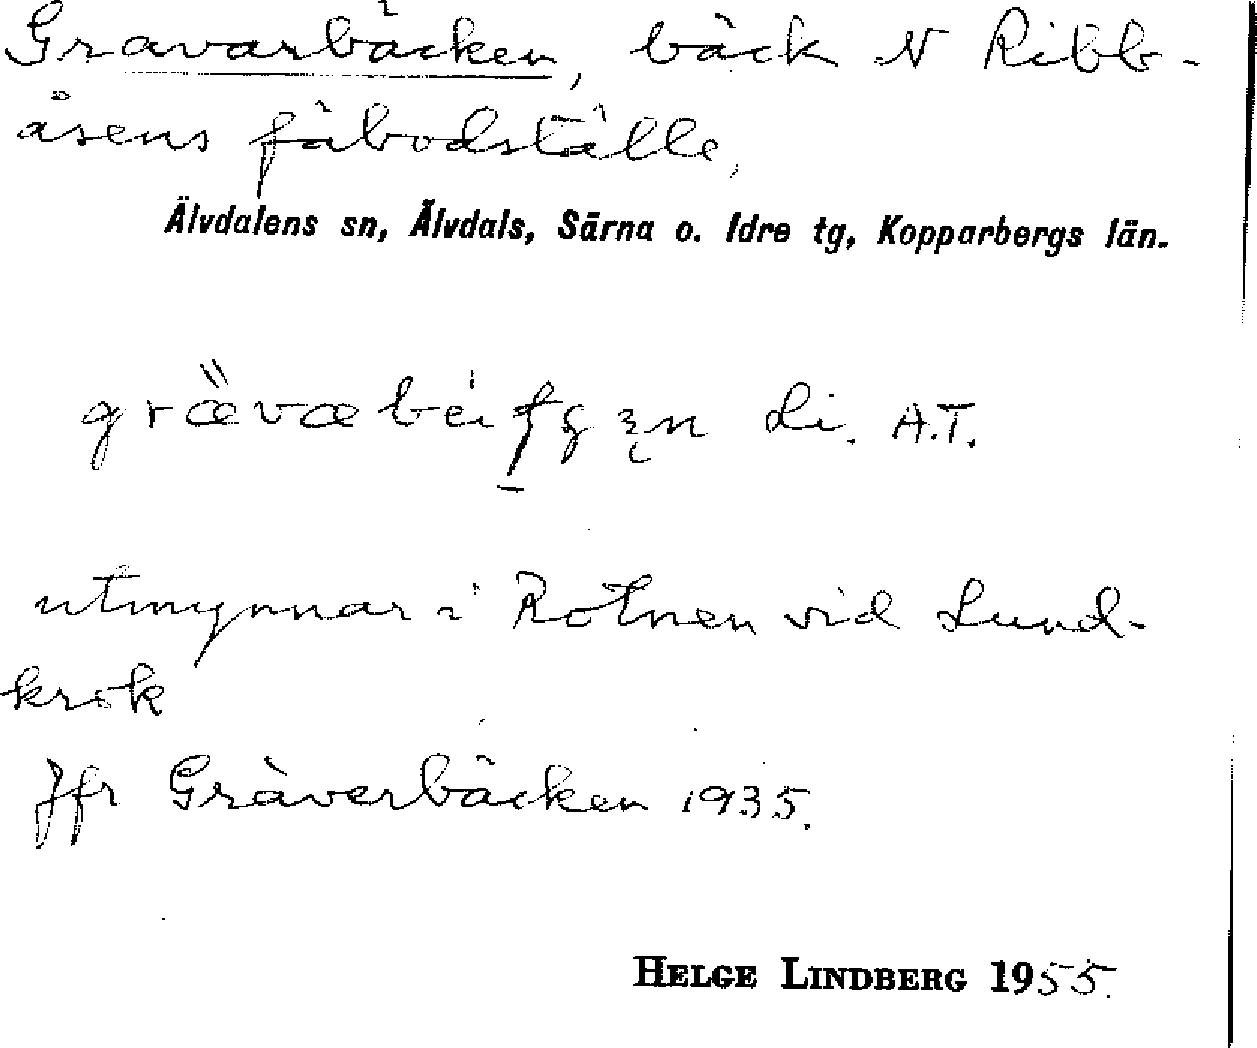 Gravarbäcken, bäck N Ribb-
åsens fäbodställe,
Älvdalens sn, Älvdals, Särna o. Idre tg, Kopparbergs län.
Li. A.T.
utmynnar i Rotnen vid Lund-
krok
Jfr Gräverbäcken 1935.
HELGE LINDBERG 1955.